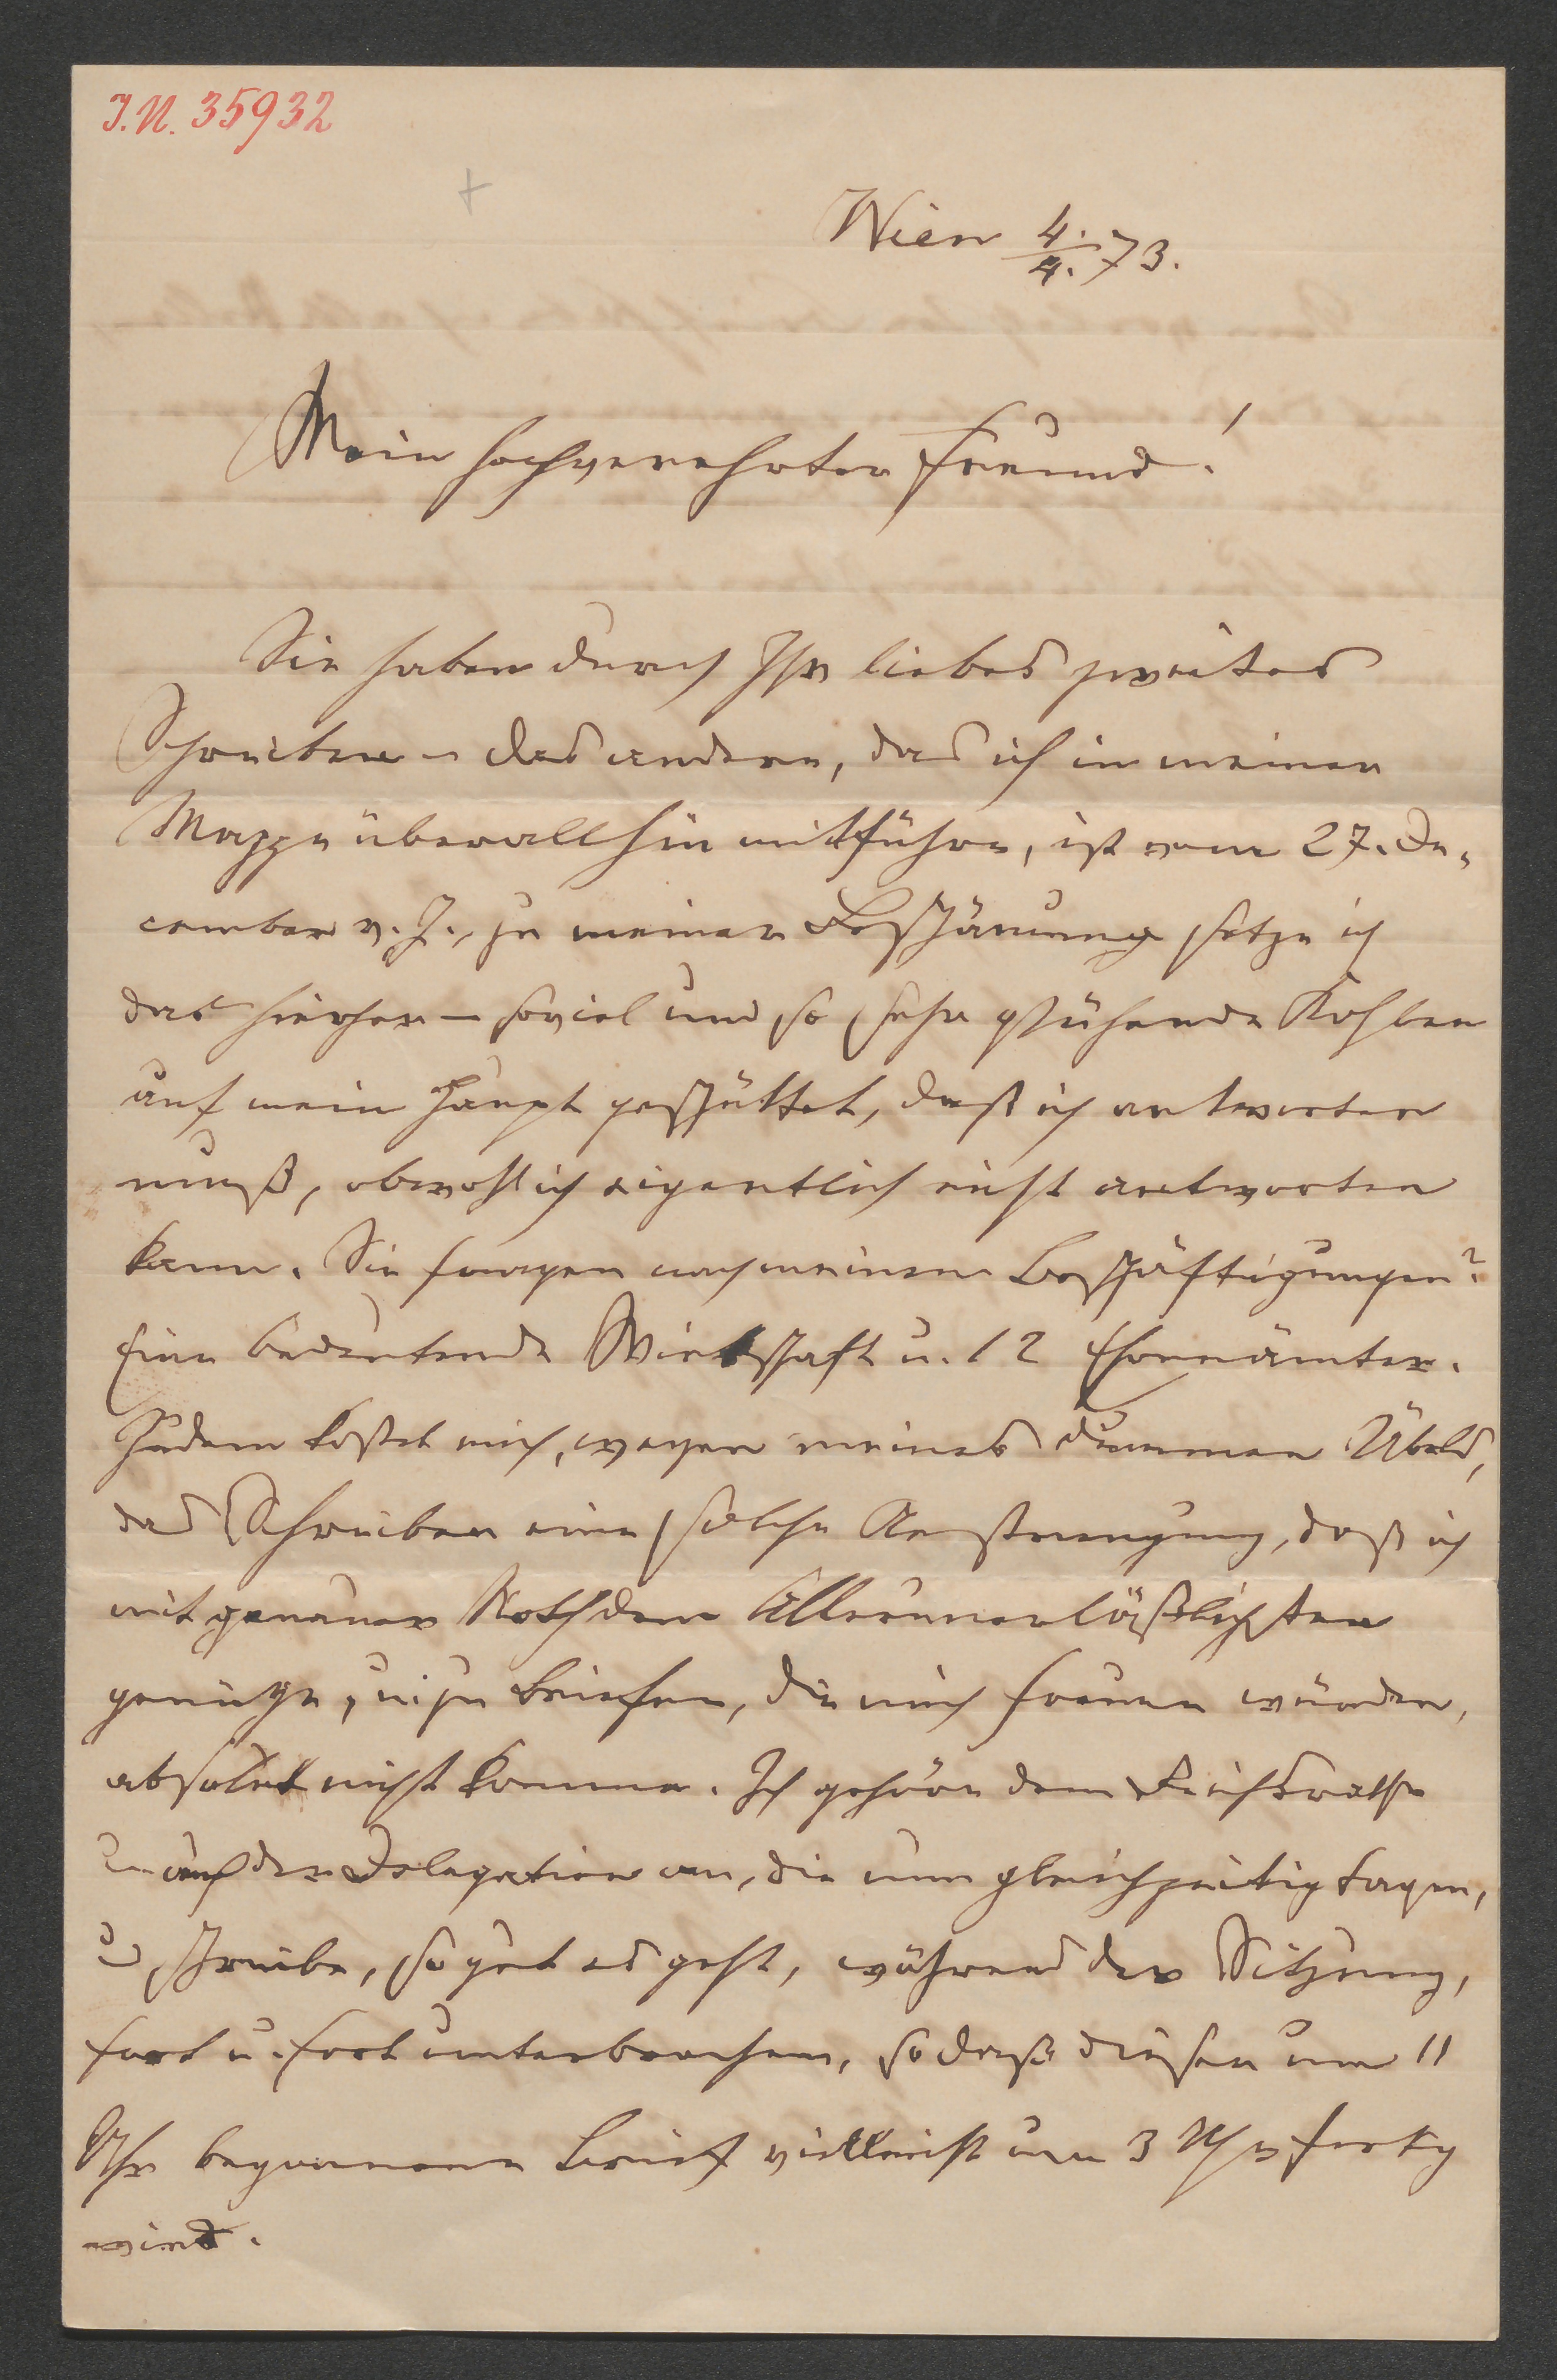 I.N. 35932
Wien 4./4. 73.
Mein hochverehrter Freund!
Sie haben durch Ihr liebes zweites
Schreiben – das andere, das ich in meiner
Mappe überallhin mitführe, ist vom 27. De-
cember v. J., zu meiner Beschämung setze ich
das hierher – soviel und so sehr glühende Kohlen
auf mein Haupt geschüttet, daß ich antworten
muß, obwohl ich eigentlich nicht antworten
kann. Sie fragen nach meinen Beschäftigungen?
Eine bedeutende Wirthschaft u. 12 Ehrenämter.
Zudem kostet mich, wegen meines dummen Übels,
das Schreiben eine solche Anstrengung, daß ich
mit genauer Noth dem Allerunerläßlichsten
genüge, u. zu Briefen, die mich freuen würden,
absolut nicht komme. Ich gehöre dem Reichsrathe
u. auch der Delegation an, die nun gleichzeitig tagen,
u. schreibe, so gut es geht, während der Sitzung,
fort u. fort unterbrochen, so daß dieser um 11
Uhr begonnene Brief vielleicht um 3 Uhr fertig
wird.